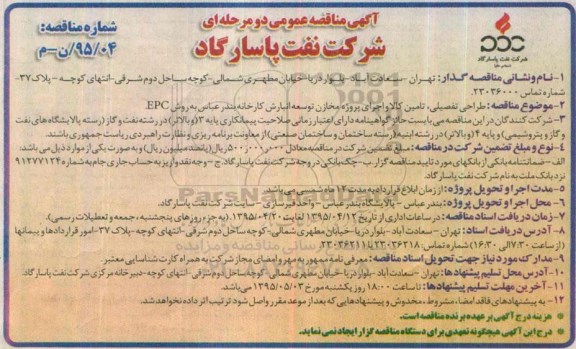 آگهی مناقصه عمومی دو مرحله‌ای
شرکت نفت پاسارگاد
شماره مناقصه:
۹۵/۰۴/ن-م
شرکت نفت پاسارگاد
۱- نام و نشانی مناقصه گذار: تهران - سعادت آباد - بلوار دریا - خیابان مطهری شمالی - کوچه ساحل دوم شرقی - انتهای کوچه - پلاک ۳۷- شماره تماس ۲۳۰۳۶۰۰۰
۲- موضوع مناقصه: طراحی تفصیلی، تامین کالا و اجرای پروژه مخازن توسعه انبارش کارخانه بندرعباس به روش EPC.
۳- شرکت کنندگان در این مناقصه می بایست حائز گواهینامه دارای اعتبار زمانی صلاحیت پیمانکاری پایه ۳ (و بالاتر) در رشته نفت و گاز (رسته پالایشگاه های نفت و گاز و پتروشیمی) و پایه ۴ (و بالاتر) در رشته ابنیه (رسته ساختمان و ساختمان صنعتی) از معاونت برنامه ریزی و نظارت راهبردی ریاست جمهوری باشند.
۴- نوع و مبلغ تضمین شرکت در مناقصه: مبلغ تضمین شرکت در مناقصه معادل ۵۰۰،۰۰۰،۰۰۰ ریال (پانصد میلیون ریال) و به صورت یکی از موارد ذیل می باشد:
الف- ضمانتنامه بانکی از بانکهای مورد تایید مناقصه گزار. ب- چک بانکی در وجه شرکت نفت پاسارگاد. ج- وجه نقد واریز به حساب جاری جام به شماره ۹۱۲۷۷۱۲۴ نزد بانک ملت به نام شرکت نفت پاسارگاد.
۵- مدت اجرا و تحویل پروژه: از زمان ابلاغ قرارداد به مدت ۱۲ ماه شمسی می باشد.
۶- محل اجرا و تحویل پروژه: بندرعباس - پالایشگاه بندرعباس - واحد قیرسازی - سایت شرکت نفت پاسارگاد.
۷- زمان دریافت اسناد مناقصه: در ساعات اداری از تاریخ ۱۳۹۵/۰۴/۱۲ لغایت ۱۳۹۵/۰۴/۲۰. (به جز روزهای پنجشنبه، جمعه و تعطیلات رسمی).
۸- آدرس دریافت اسناد: تهران - سعادت آباد - بلوار دریا - خیابان مطهری شمالی - کوچه ساحل دوم شرقی - انتهای کوچه - پلاک ۳۷- امور قراردادها و پیمانها (از ساعت ۷:۳۰ الی ۱۶:۳۰) شماره تماس: ۲۳۰۳۶۲۱۸-۲۳۰۳۶۲۱۱
۹- مدارک مورد نیاز جهت تحویل اسناد مناقصه: معرفی نامه ممهور به مهر و امضای مجاز شرکت به همراه کارت شناسایی معتبر.
۱۰- آدرس محل تسلیم پیشنهادها: تهران - سعادت آباد - بلوار دریا - خیابان مطهری شمالی - کوچه ساحل دوم شرقی - انتهای کوچه - دبیرخانه مرکزی شرکت نفت پاسارگاد.
۱۱- آخرین مهلت تسلیم پیشنهادها: تا ساعت ۱۸:۰۰ روز یکشنبه مورخ ۱۳۹۵/۰۵/۰۳ می باشد.
۱۲- به پیشنهادهای فاقد امضا، مشروط، مخدوش و پیشنهادهایی که بعد از موعد مقرر واصل شود ترتیب اثر داده نخواهد شد.
* هزینه درج آگهی بر عهده برنده مناقصه است.
* درج این آگهی هیچگونه تعهدی برای دستگاه مناقصه گزار ایجاد نمی نماید.